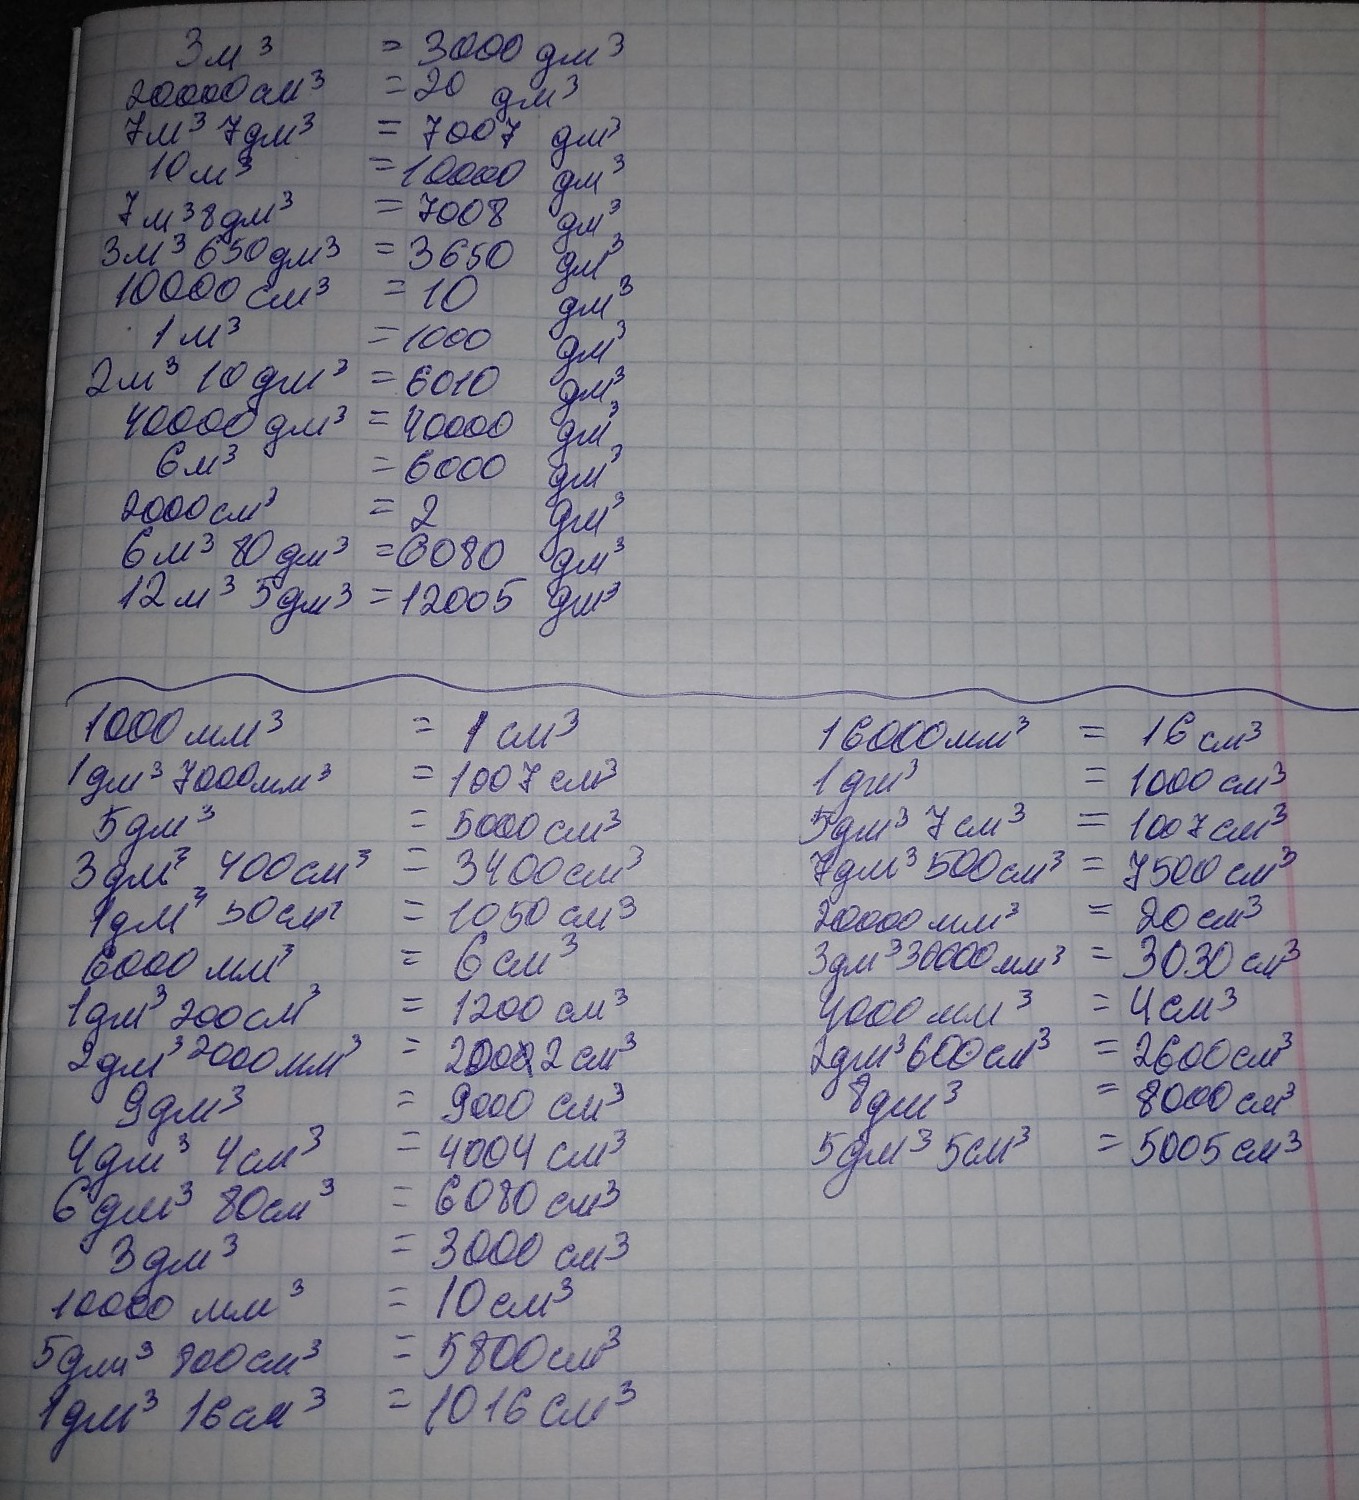 3м³ = 3000 дм³
20000см³ = 20 дм³
7м³ 7дм³ = 7007 дм³
10м³ = 10000 дм³
7м³ 8дм³ = 7008 дм³
3м³ 650дм³ = 3650 дм³
10000см³ = 10 дм³
1м³ = 1000 дм³
2м³ 10дм³ = 6010 дм³
40000дм³ = 40000 дм³
6м³ = 6000 дм³
2000см³ = 2 дм³
6м³ 80дм³ = 6080 дм³
12м³ 5дм³ = 12005 дм³
1000мм³ = 1см³
1дм³ 7000мм³ = 1007см³
5дм³ = 5000см³
3дм³ 400см³ = 3400см³
1дм³ 50см² = 1050см³
6000мм³ = 6см³
1дм³ 200см³ = 1200см³
2дм³ 2000мм³ = 2002см³
9дм³ = 9000см³
4дм³ 4см³ = 4004см³
6дм³ 80см³ = 6080см³
3дм³ = 3000см³
10000мм³ = 10см³
5дм³ 800см³ = 5800см³
1дм³ 16см³ = 1016см³
16000мм³ = 16см³
1дм³ = 1000см³
5дм³ 7см³ = 1007см³
7дм³ 500см³ = 7500см³
20000мм³ = 20см³
3дм³ 30000мм³ = 3030см³
4000мм³ = 4см³
2дм³ 600см³ = 2600см³
8дм³ = 8000см³
5дм³ 5см³ = 5005см³